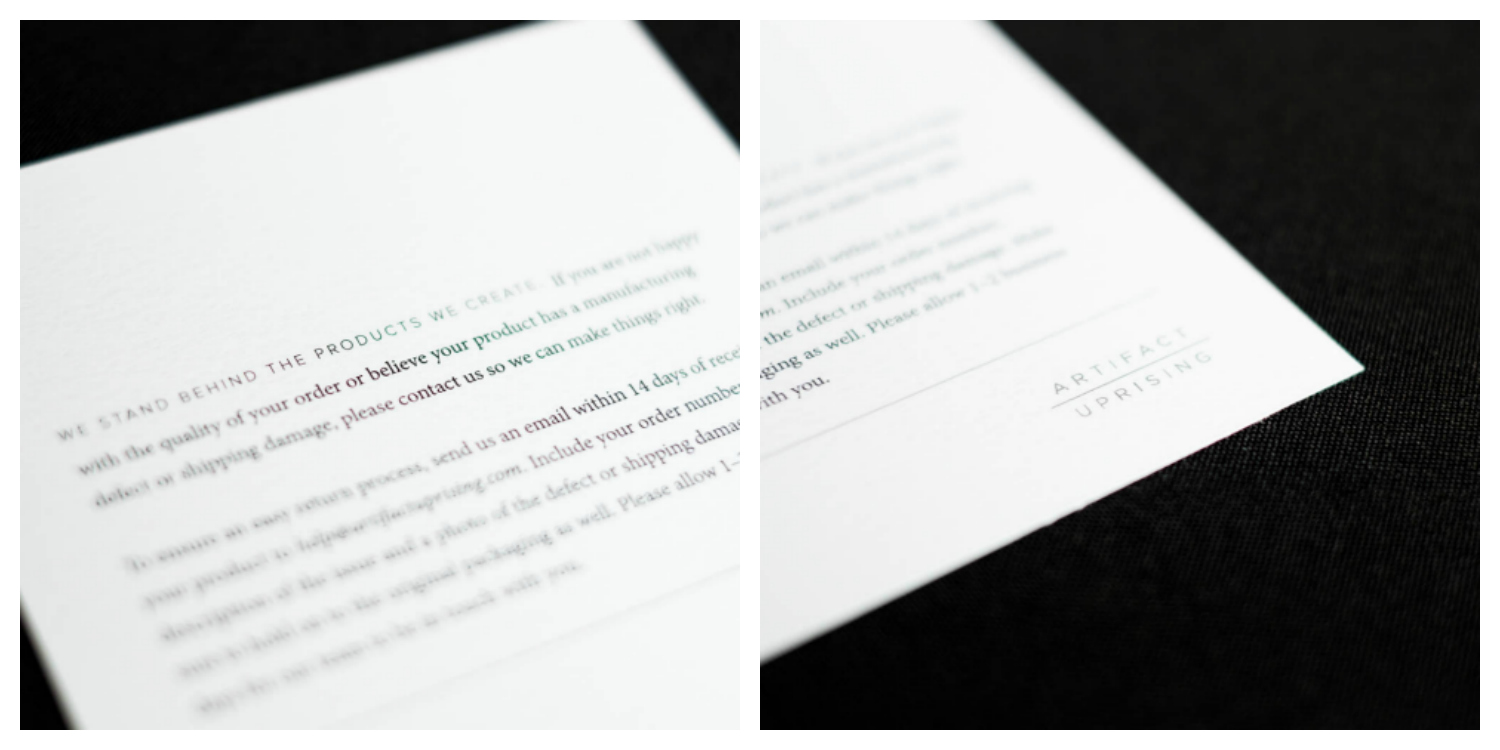 WE STAND BEHIND THE PRODUCTS WE CREATE. If you are not happy
with the quality of your order or believe your product has a manufacturing
defect or shipping damage, please contact us so we can make things right.
To ensure an easy return process, send us an email within 14 days of
your product to help@artifactuprising.com. Include your order number,
description of the issue and a photo of the defect or shipping damage.
to hold on to the original packaging as well. Please allow 1–
to be in touch with you.
an email within 14 days of receiving
Include your order number,
the defect or shipping damage. Make
as well. Please allow 1–2 business
with you.
ARTIFACT
UPRISING